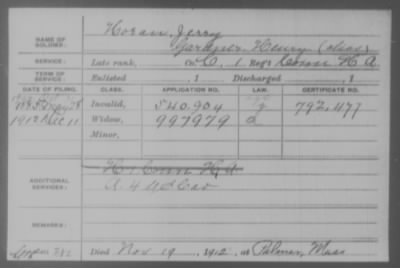 NAME OF SOLDIER: Horan, Jerry
Gardner, Henry (alias)
SERVICE: Late rank, Co. C, 1 Reg't Conn H A
TERM OF SERVICE: Enlisted , 1 Discharged , 1
DATE OF FILING. CLASS. APPLICATION NO. LAW. CERTIFICATE NO.
May 28 Invalid, 540.904 792.477
1912 Dec 11 Widow, 997979
Minor,
ADDITIONAL SERVICES: H 1 Conn H A
A. 4 U S Cav
REMARKS:
Died Nov 19, 1912, at Palmer, Mass